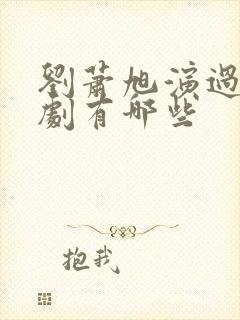 劉蕭旭演過
劇有哪些
抱我